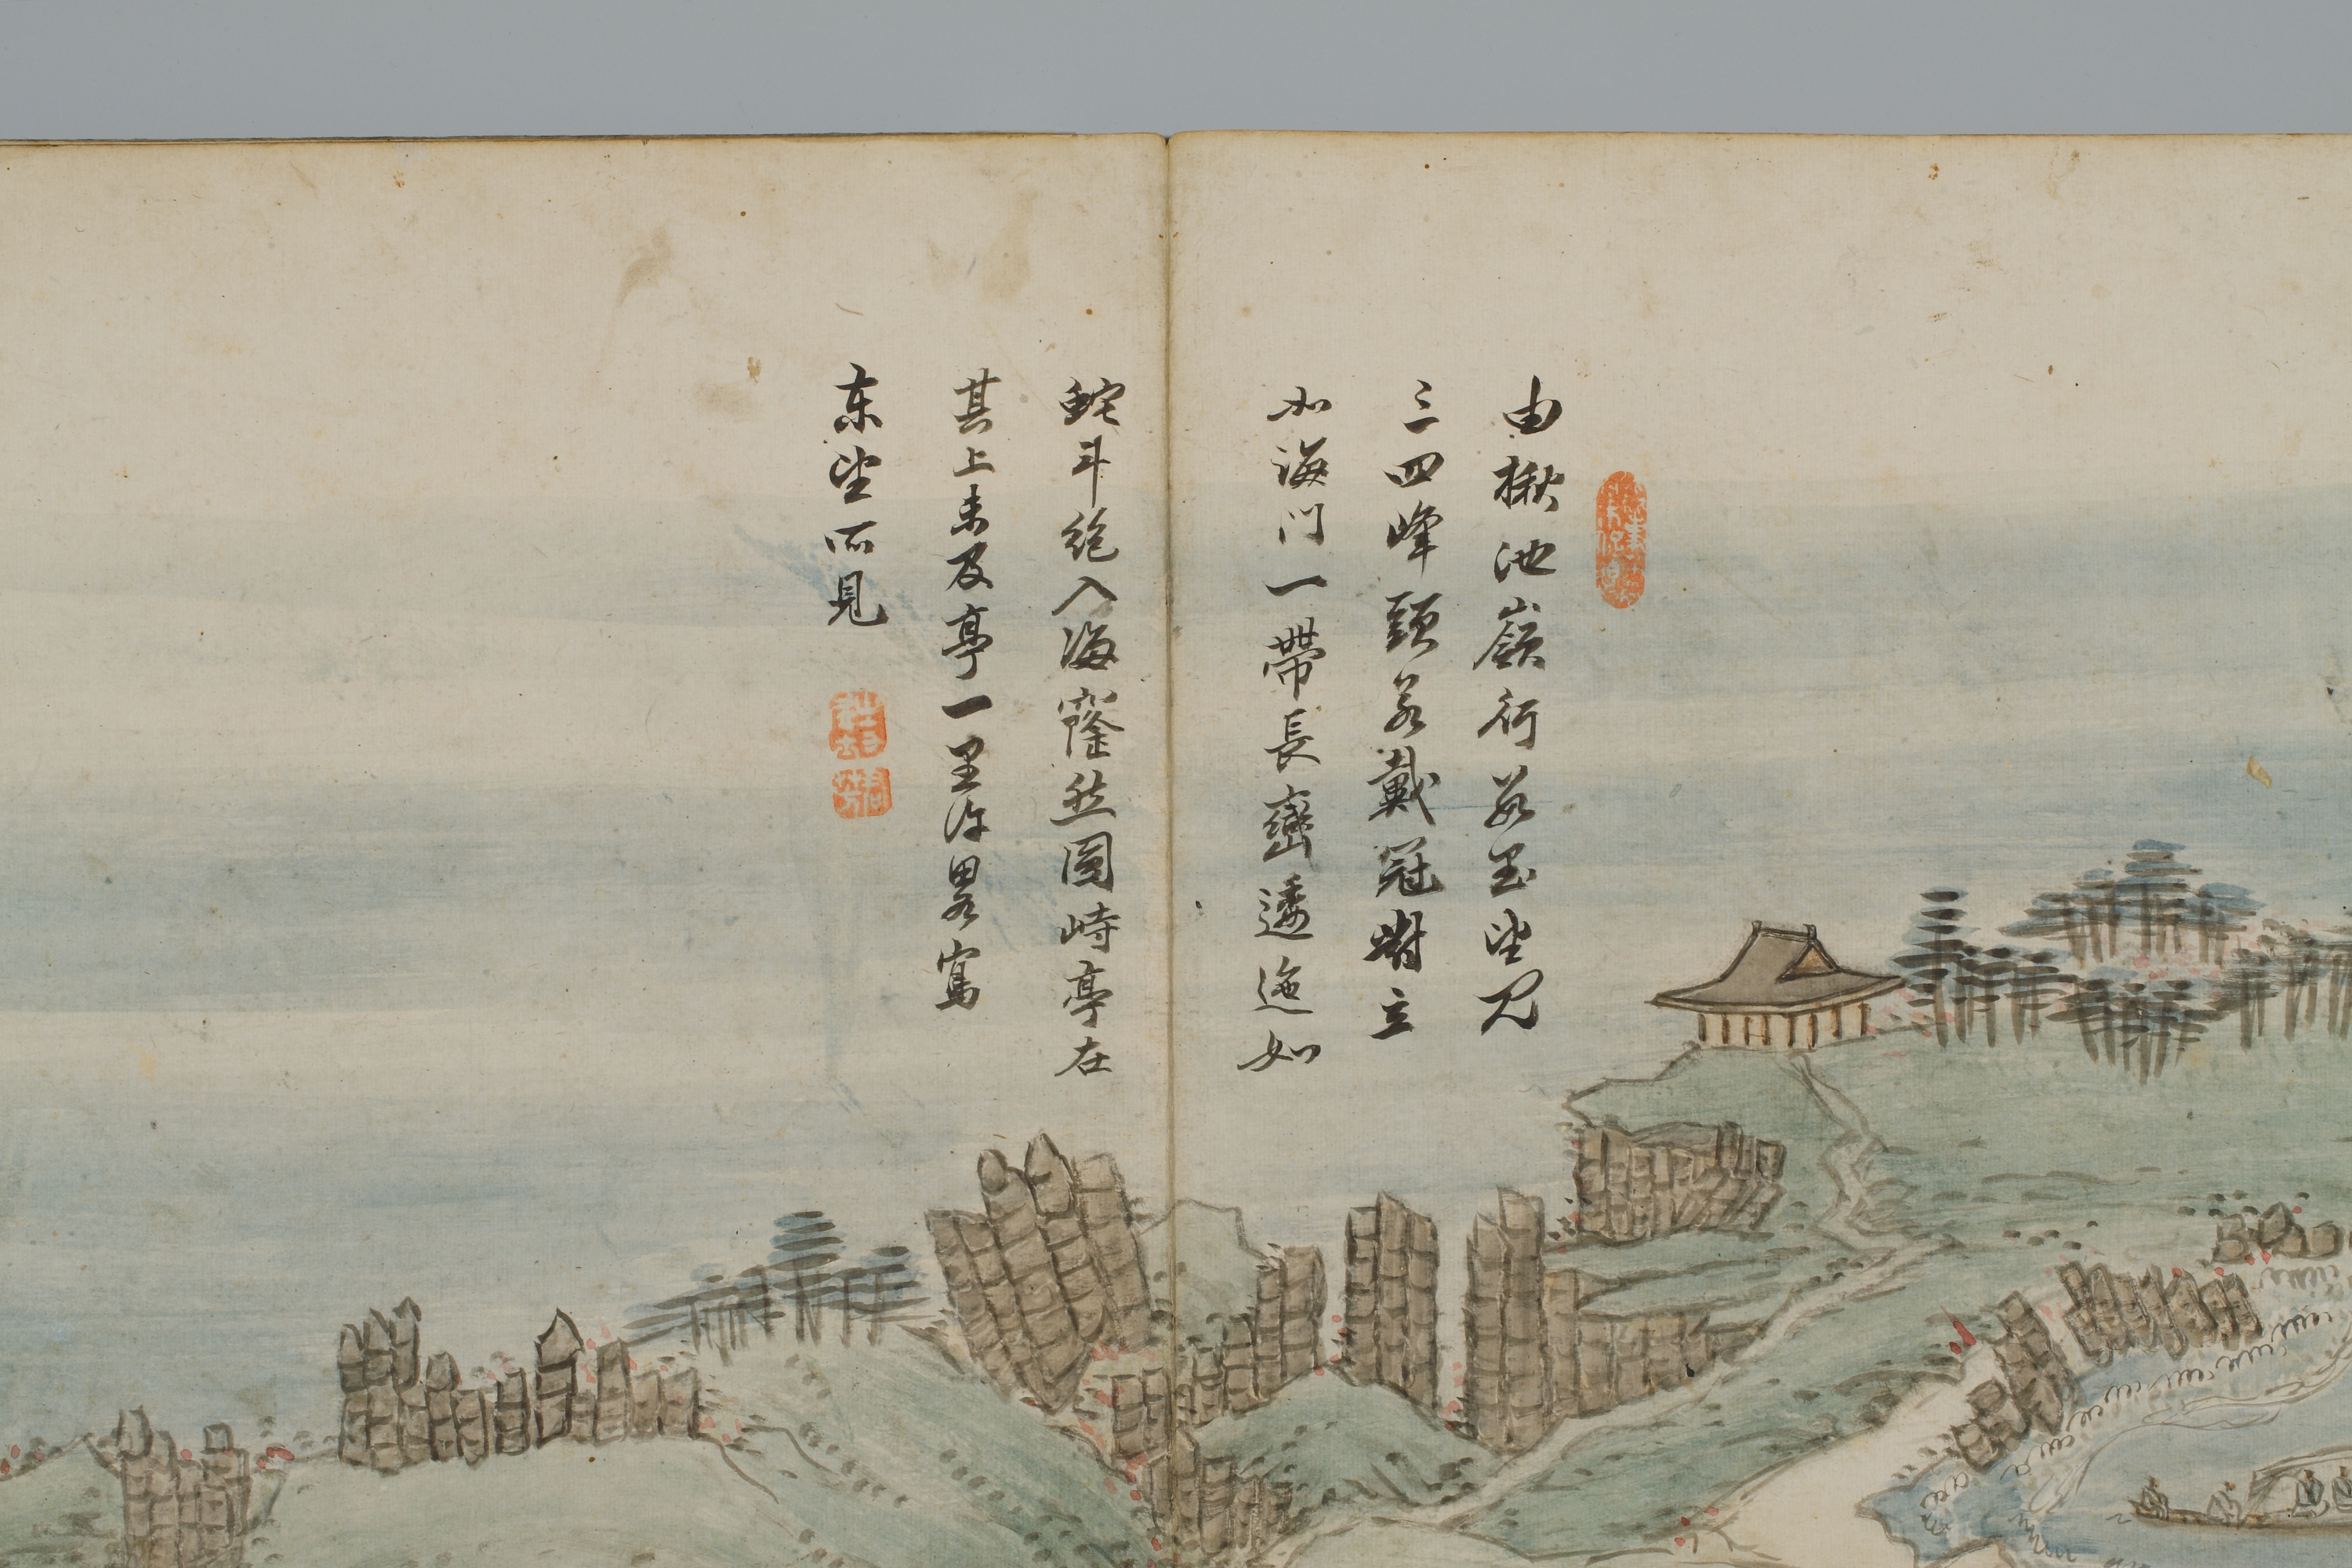 由楸池嶺行数里望見
三四峰頭若戴冠對立
如海門一帶長巒逶迤如
蛇斗絶入海窿然圓峙亭在
其上未及亭一里許畧寫
東望所見